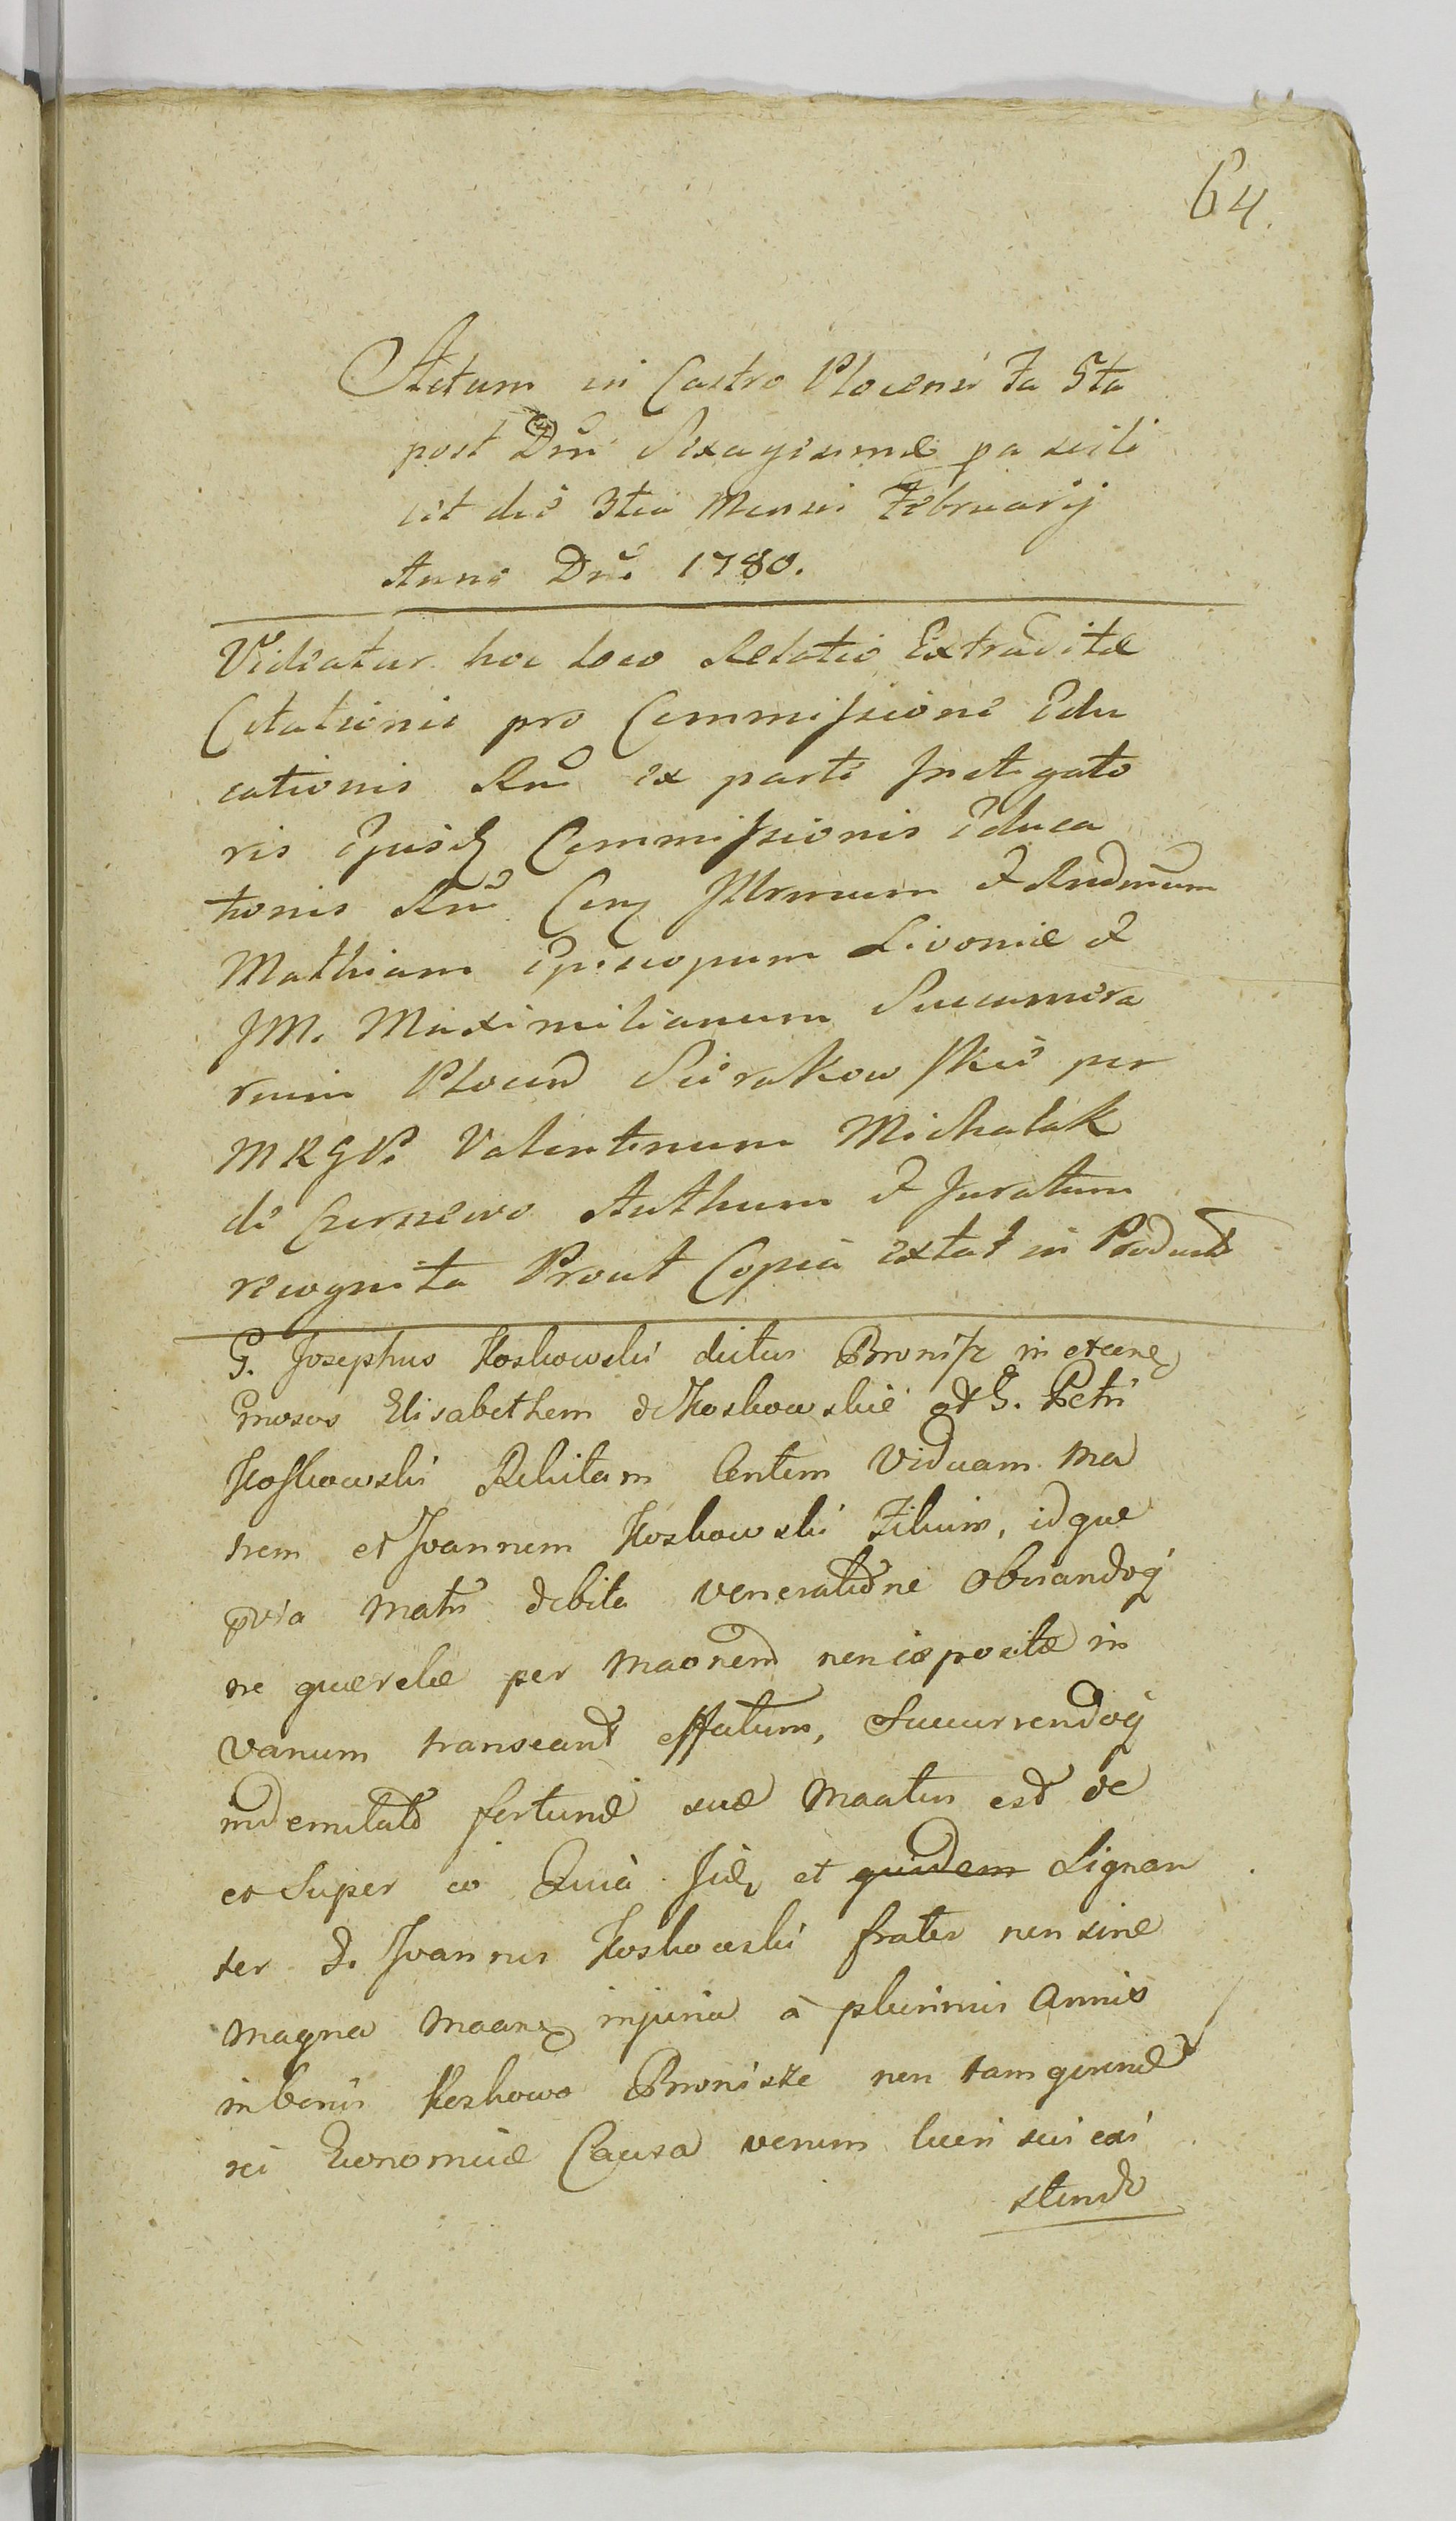 64.
Actum in Castro Plocensi Fa 5ta
post Dm̄ Sixagesimæ pa scili
cet die 3tia Mensis Februarij
Anno Dni 1780.
Videatur hoc loco Relatio Extraditæ
Citationis pro Commissione Edu
cationis Rni ex parte Instigato
ris Ejusd Commissionis Educa
tionis Rni Cem Illrmum & Rndmum
Mathiam Episcopum Livoniæ &
JM. Maximilianum Succamera
rium Plocen Sierakowskie per
MRGD. Valentinum Michalak
de Czerniewo Authum & Juratum
recognita Prout Copia extat in Product
G. Josephus Koskowski dictus Bronisz in et cone
Gnosos Elisabethem de Koskowskie olt G. Petri
Koskowski Relictam Contem Viduam Ma
trem et Joannem Koskowski Filium, idque
pvia Matri debita veneratione obviandoq
ne quærelæ per Maonem non ispositæ in
vanum transeant effatum, Succurrendoq
indemitati fortunæ suæ Maatus est de
et Super eo Quià Iide et quidem Signan
ter G. Joannes Koskowski frater non sine
magna Maane injuria à plurimis Annis
in bonis Koskowo Bronisze non tam genuine
rei Economicæ Causa verum lucri sui exi
stendo